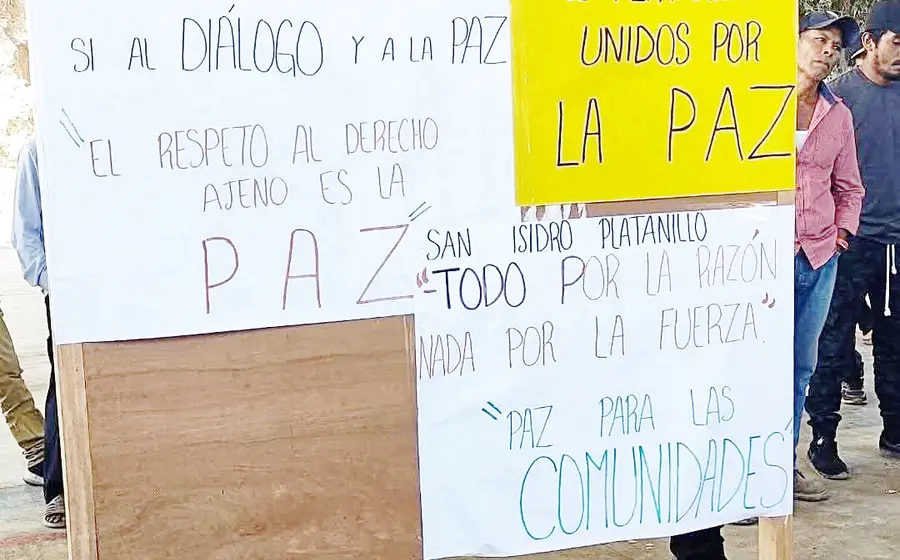 SI AL DIÁLOGO Y A LA PAZ
"EL RESPETO AL DERECHO
AJENO ES LA
PAZ"
UNIDOS POR
LA PAZ
SAN ISIDRO PLATANILLO
"TODO POR LA RAZÓN
NADA POR LA FUERZA".
"PAZ PARA LAS
COMUNIDADES"